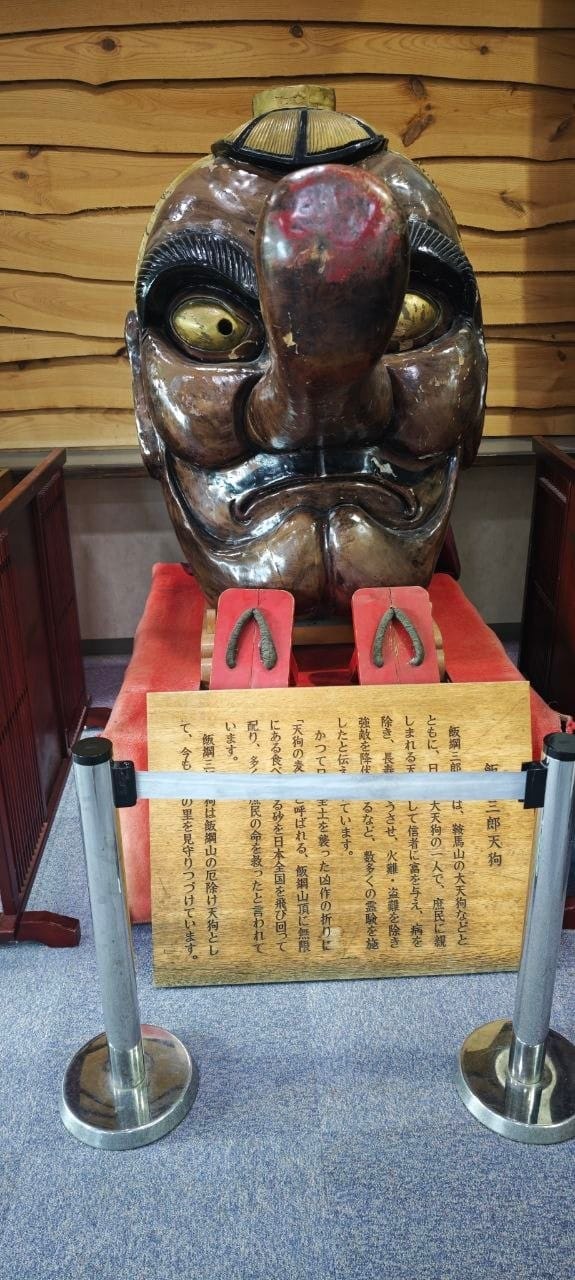 飯 三郎天狗
飯綱三郎 は、鞍馬山の大天狗などと
ともに、日 大天狗の一人で、庶民に親
しまれる天 して信者に富を与え、病を
除き、長寿 うさせ、火難・盗難を除き
強敵を降伏 るなど、数多くの霊験を施
したと伝え ています。
かつて 全土を襲った凶作の折りに
「天狗の麦 と呼ばれる、飯綱山頂に無限
にある食べ る砂を日本全国を飛び回って
配り、多く 庶民の命を救ったと言われて
います。
飯綱三 狗は飯綱山の厄除け天狗とし
て、今も の里を見守りつづけています。